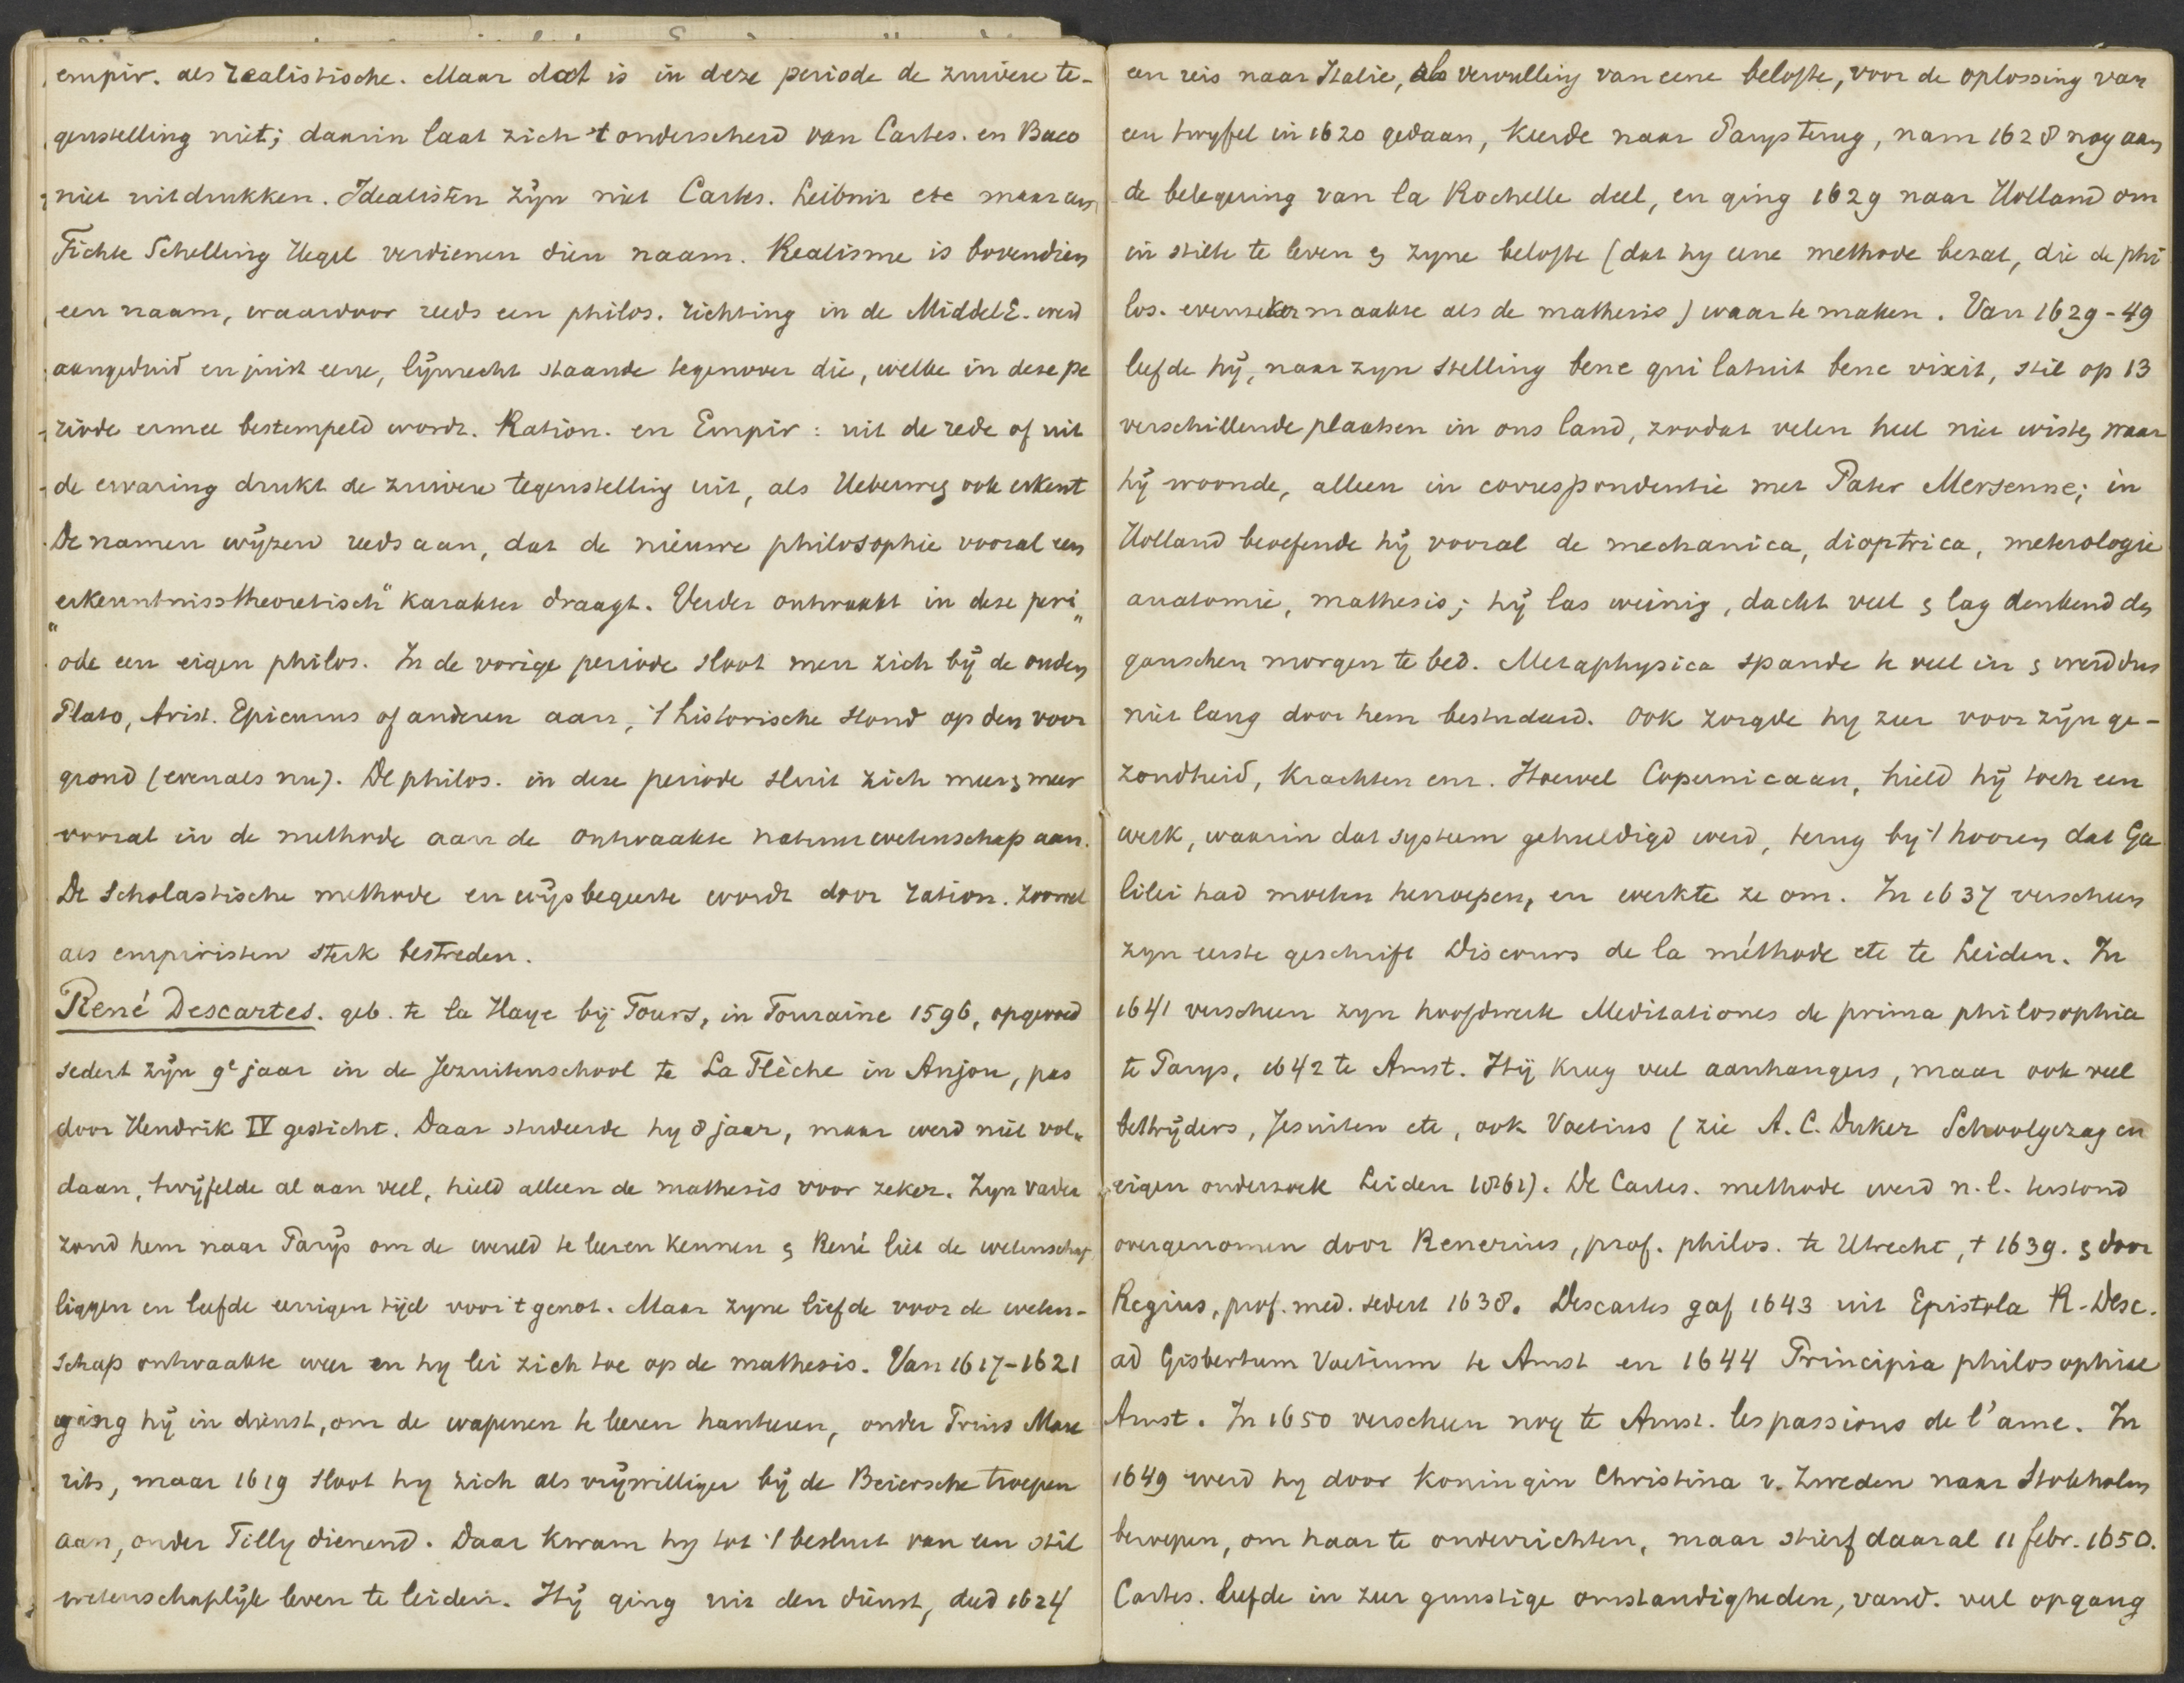 empir. als realistische. Maar dat is in deze periode de zuivere te-
genstelling niet; daarin laat zich 't onderscheid van Cartes. en Baco
niet uitdrukken. Idealisten zijn niet Cartes. Leibniz etc maar
Fichte Schelling Hegel verdienen dien naam. Realisme is bovendien
een naam, waardoor reeds een philos. richting in de MiddelE. werd
aangeduid en juist eene, lijnrecht staande tegenover die, welke in deze pe
riode ermee bestempeld wordt. Ration. en Empir: uit de rede of uit
de ervaring drukt de zuivere tegenstelling uit, als Ueberweg ook erkent
De namen wijzen reeds aan, dat de nieuwe philosophie vooral een
"erkenntnisstheoretisch" karakter draagt. Verder ontwaakt in deze peri„
ode een eigen philos. In de vorige periode sloot men zich bij de ouden
Plato, Arist. Epicurus of anderen aan, 't historische stond op den voor
grond (evenals nu). De philos. in deze periode sluit zich meer & meer
vooral in de methode aan de ontwaakte natuurwetenschap aan.
De Scholastische methode en wijsbegeerte wordt door ration. zoowel
als empiristen sterk bestreden.
René Descartes. geb. te la Haye bij Tours, in Touraine 1596, opgevoed
sedert zijn 9e jaar in de Jezuitenschool te La Flèche in Anjou, pas
door Hendrik IV gesticht. Daar studeerde hy 8 jaar, maar werd niet vol„
daan, twijfelde al aan veel, hield alleen de mathesis voor zeker. Zyn vader
zond hem naar Parijs om de wereld te leeren kennen & René liet de wetenschap
liggen en leefde eenigen tijd voor 't genot. Maar zyne liefde voor de weten-
schap ontwaakte weer en hy lei zich toe op de mathesis. Van 1617-1621
ging hij in dienst, om de wapenen te leeren hanteeren, onder Prins Mau
rits, maar 1619 sloot hy zich als vrijwilliger bij de Beiersche troepen
aan, onder Tilly dienend. Daar kwam hy tot 't besluit van een stil
wetenschaplijk leven te leiden. Hij ging uit den dienst, deed 1624
een reis naar Italie, als vervulling van eene belofte, voor de oplossing van
een twyfel in 1620 gedaan, keerde naar Parys terug, nam 1628 nog aan
de belegering van la Rochelle deel, en ging 1629 naar Holland om
in stilte te leven & zyne belofte (dat hy eene methode bezat, die de phi
los. evenzeker maakte als de mathesis) waar te maken. Van 1629-49
leefde hij, naar zyn stelling bene qui latuit bene vixit, stil op 13
verschillende plaatsen in ons land, zoodat velen heel niet wisten waar
hij woonde, alleen in correspondentie met Pater Mersenne; in
Holland beoefende hij vooral de mechanica, dioptrica, meterologie
anatomie, mathesis; hij las weinig, dacht veel & lag denkend den
ganschen morgen te bed. Metaphysica spande te veel in & werd dus
niet lang door hem bestudeerd. Ook zorgde hy zeer voor zijn ge-
zondheid, krachten enz. Hoewel Copernicaan, hield hij toch een
werk, waarin dat systeem gehuldigd werd, terug by 't hooren dat Ga
lilei had moeten herroepen, en werkte ze om. In 1637 verscheen
zyn eerste geschrift Discours de la méthode etc te Leiden. In
1641 verscheen zyn hoofdwerk Meditationes de prima philosophia
te Parys, 1642 te Amst. Hij kreeg veel aanhangers, maar ook veel
bestrijders, Jesuiten etc, ook Voetius (zie A. C. Duker Schoolgezag en
eigen onderzoek Leiden 1861). De Cartes. methode werd n.l. terstond
overgenomen door Renerius, prof. philos. te Utrecht, † 1639. & door
Regius, prof. med. sedert 1638. Descartes gaf 1643 uit Epistola R. Desc.
ad Gisbertum Voetium te Amst en 1644 Principia philosophiae
Amst. In 1650 verscheen nog te Amst. les passions de l'ame. In
1649 werd hy door koningin Christina v. Zweden naar Stokholm
beroepen, om haar te onderrichten, maar stierf daar al 11 febr. 1650.
Cartes. leefde in zeer gunstige omstandigheden, vand. veel opgang